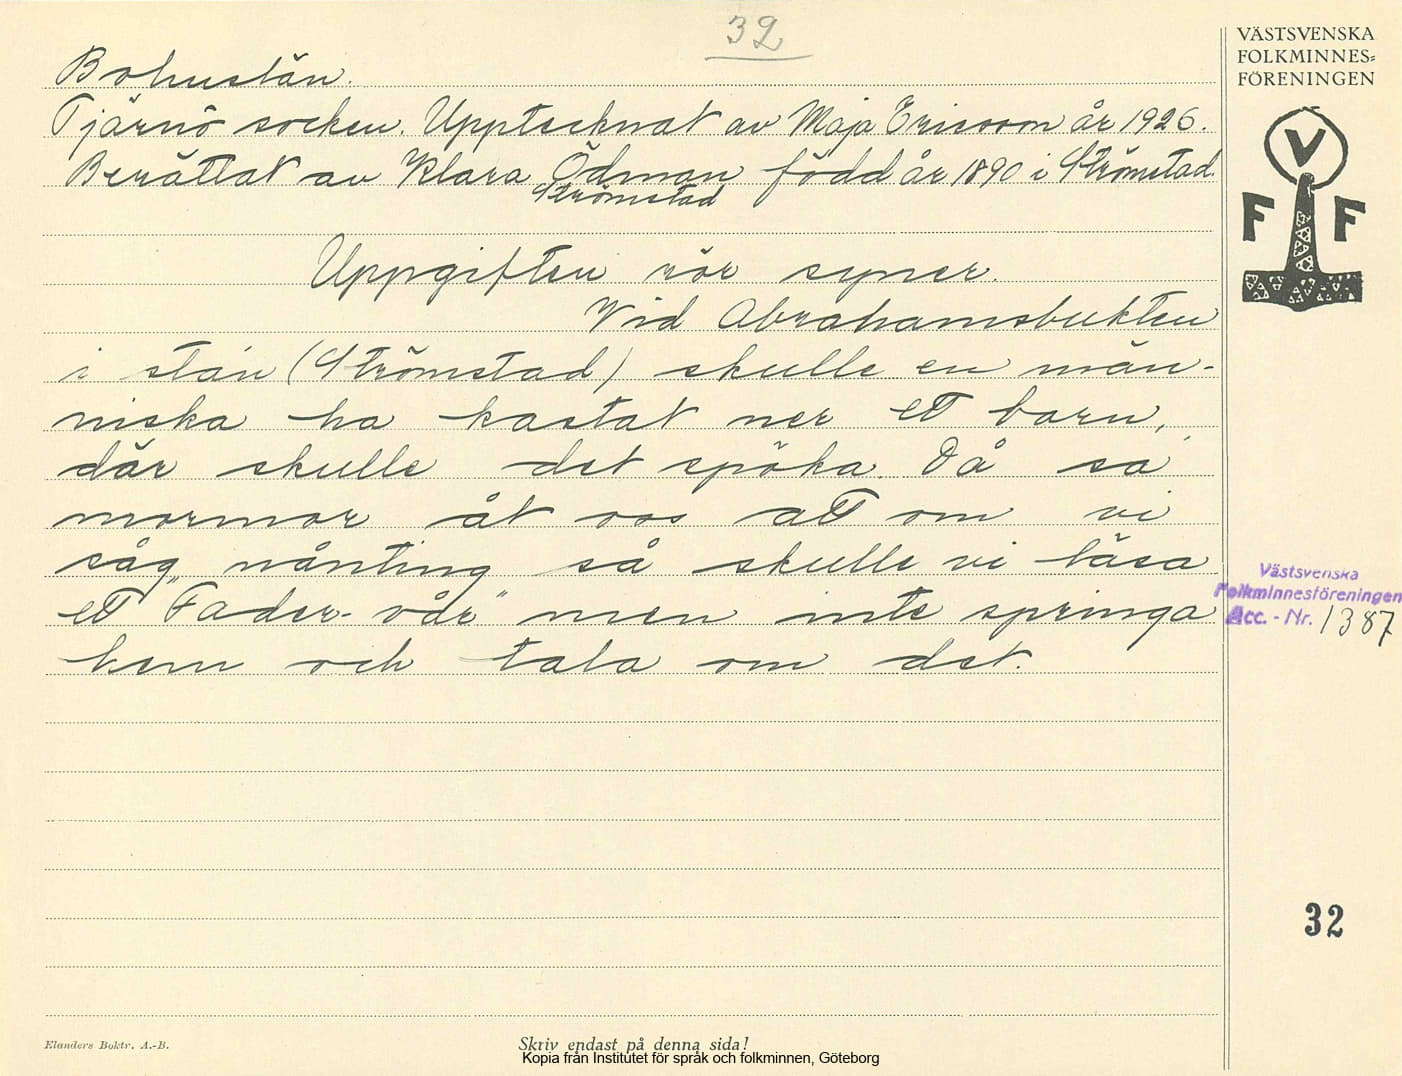 32
VÄSTSVENSKA
FOLKMINNES=
FÖRENINGEN
Bohuslän.
Tjärnö socken. Upptecknat av Maja Ericsson år 1926.
Berättat av Klara Ödman född år 1890 i Strömstad.
Strömstad
V
F F
Uppgiften rör syner.
Vid Abrahamsbukten
i stán (Strömstad) skulle en män-
niska ha kastat ner ett barn,
där skulle det spöka. Då sa
mormor åt oss att om vi
såg nånting så skulle vi läsa
ett "Fader-vår" men inte springa
hem och tala om det.
Västsvenska
Folkminnesföreningen
Acc. - Nr. 1387
32
Elanders Boktr. A.-B.
Skriv endast på denna sida!
Kopia från Institutet för språk och folkminnen, Göteborg